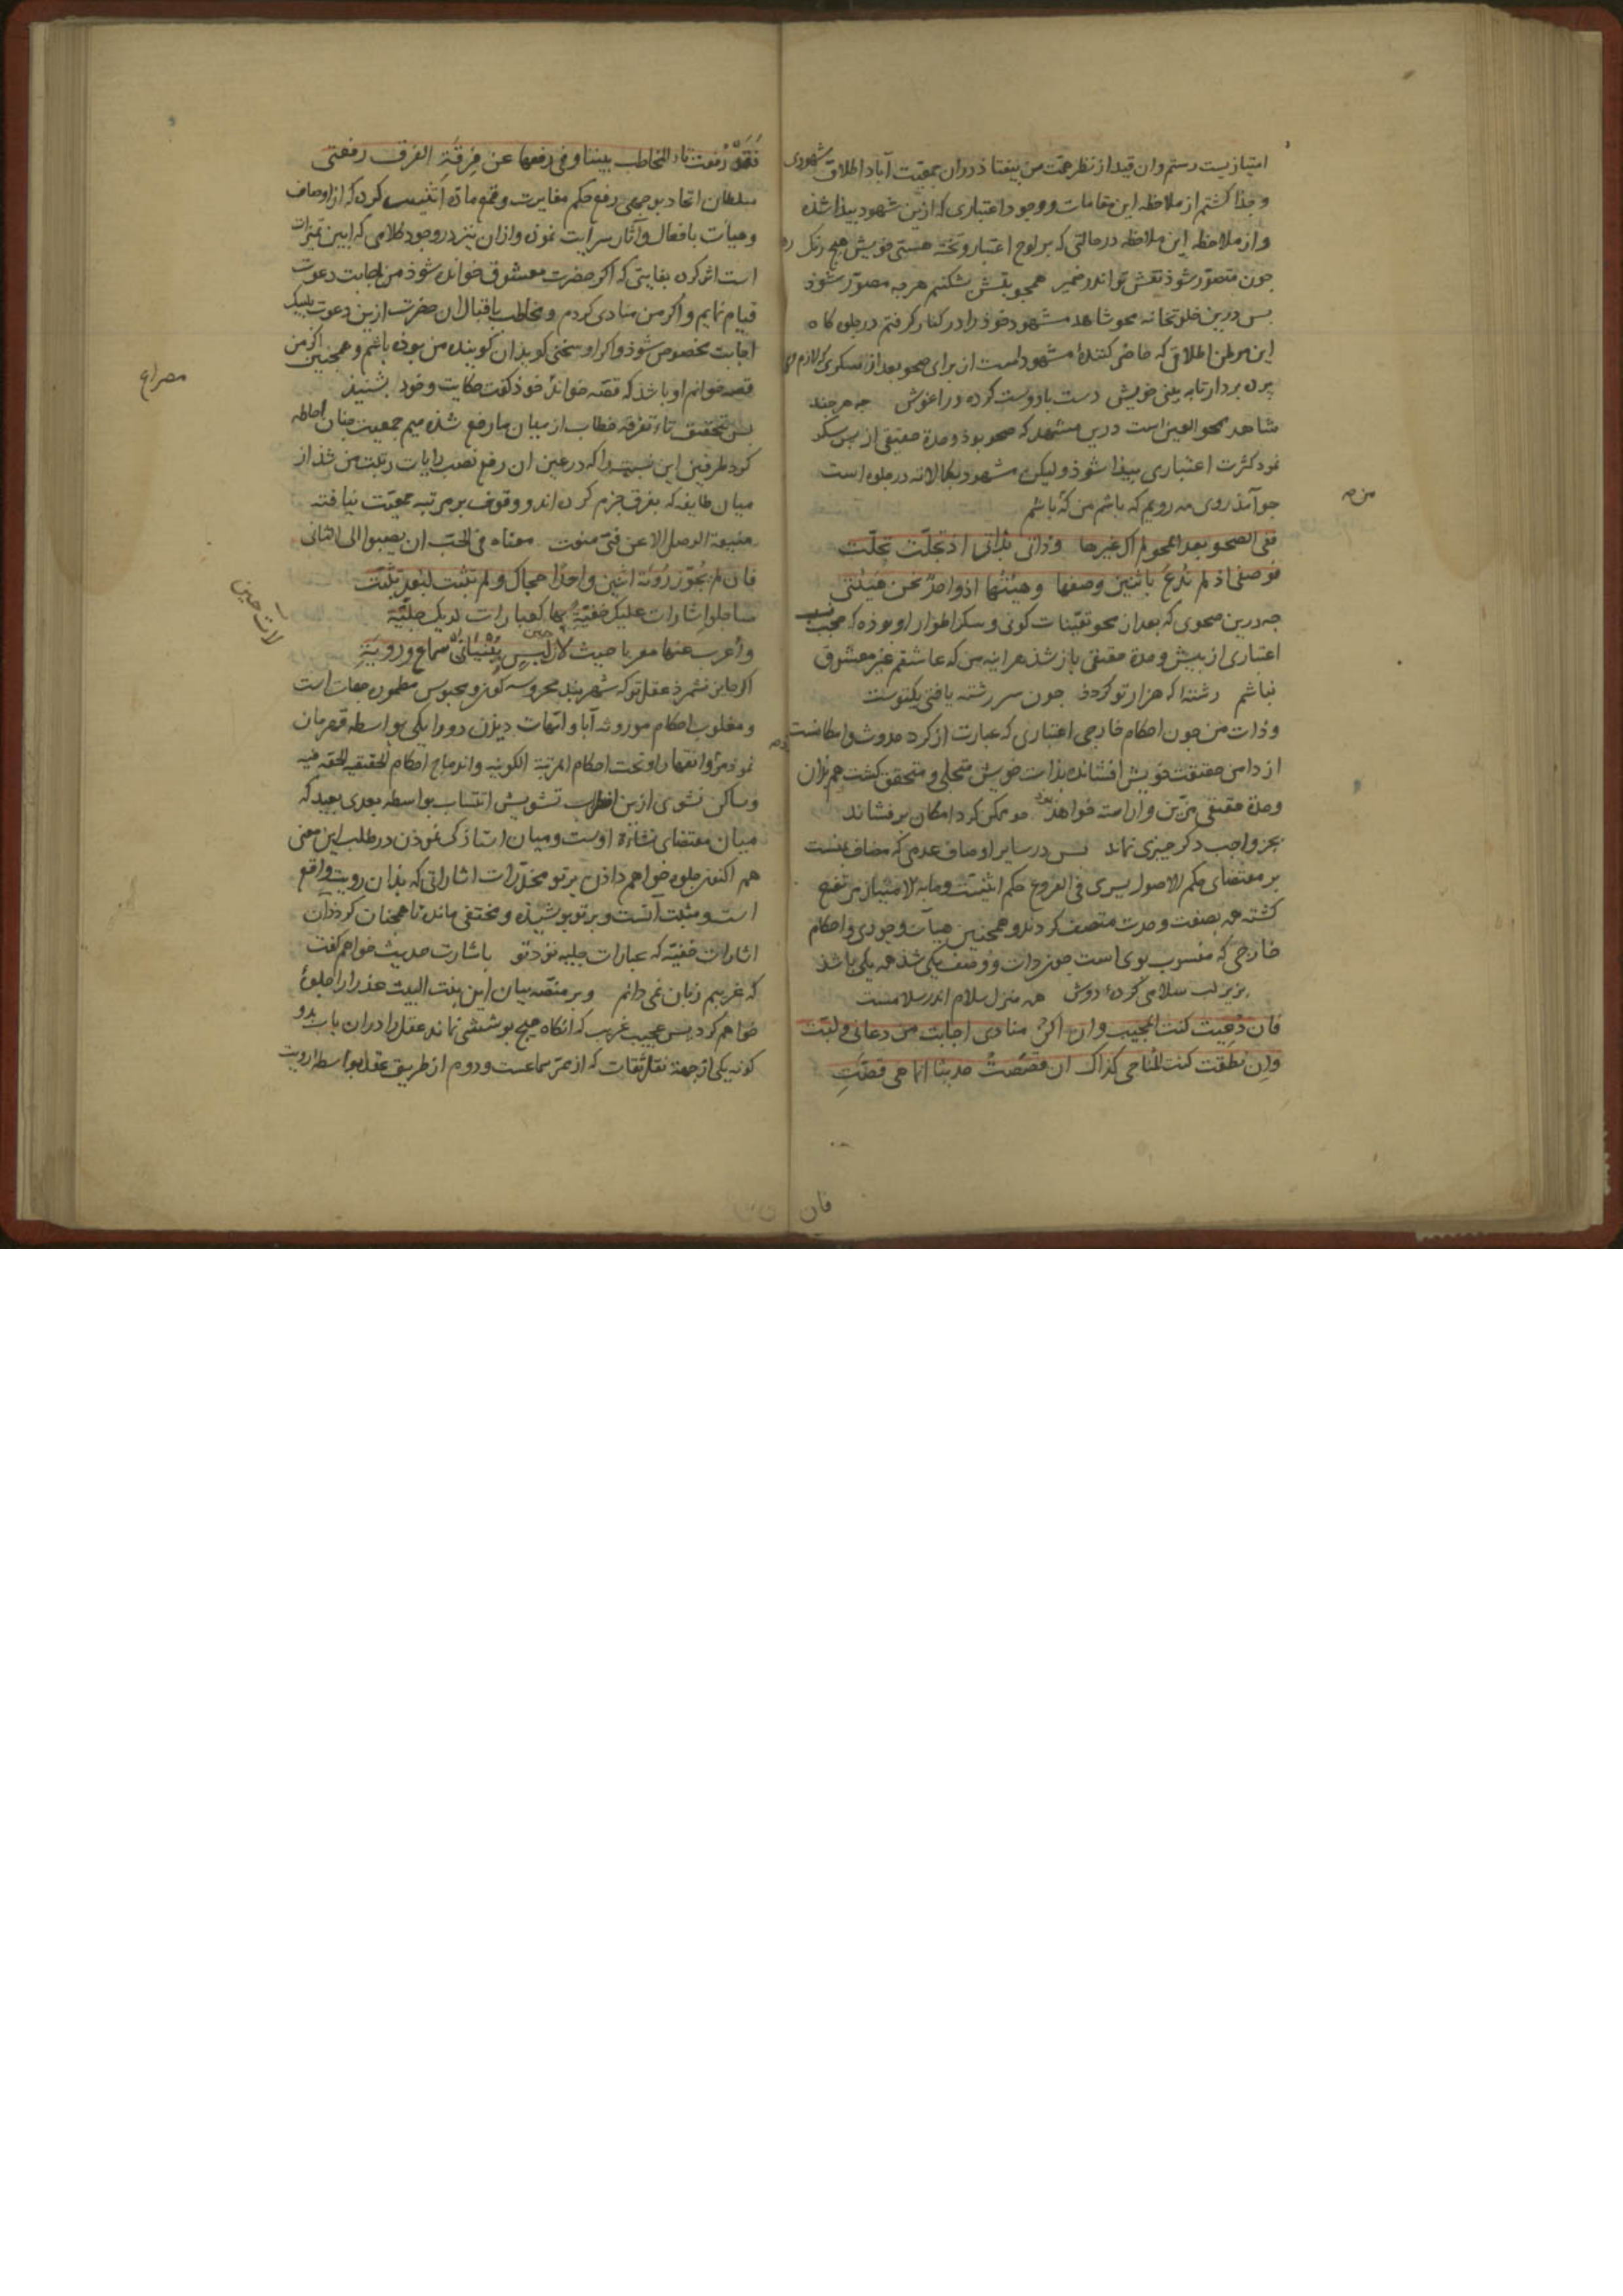 امتیازیست رستم وان قید از نظر همّت من بیفتاد دران بمعیّت آباد اطلاق شهودی
وجدا کشتم از ملاحظه این مقامات ووجود اعتباری که ازین شهود بیدا شذه
واز ملاحظه این ملاحظه درحالتی که بر لوح اعتبار وتخته هستی خویش هیچ رنک
جون متصوّر شوذ نقش تو اندر ضمیر همجو نقش بشکنم هرجه مصوّر شوذ
بس درین خلوتخانه محو شاهد مشهود خوذ را در کنار کرفتم در جلوه کاه
این موطن اطلاقی که حاضر کنندهٔ مشهود است از برای صحو بعد از سکری که لازم
برده بردار تا به بینی خویش دست با دوست کرده در اغوش جه هر جند
شاهد محو العین است درین مشهد که صحو بوذ وحدة حقیقی از بس سکر
نمود کثرت اعتباری بیذا شوذ ولیکن مشهود بکمالاته در جلوه است
جو آمد روی مه رویم که باشم من که باشم
من صـ
ففی الصحو بعد المحو لم اک غیرها وذاتی بذاتی اذ تجلّت تجلّت
فوصفی اذ لم تدع باثنین وصفها وهیئتها اذ واحدٌ نحن هیئتی
جه درین صحوی که بعد از محو تعیّنات کونی وسکر اطوار او بوذه
اعتباری از بیش وحدة حقیقی باز شذ هراینه من که عاشقم غیر معشوق
نباشم رشته اکه هزار تو کردذ جون سر رشته یافتی یکتوست
وذات من جون احکام خارجی اعتباری که عبارت از کرد حدوث وامکانست
از دامن حقیقت خویش افشانده بذات خویش متجلی ومتحقق کشت هم بذان
وحدة حقیقی مزیّن واراسته خواهد بوذ جو ممکن کرد امکان بر فشاند
بجز واجب دکر چیزی نماند بس در سایر اوصاف عدمی که مضاف بمنست
بر مقتضای حکم الاصول یسری فی الفروع حکم اثنینیّت ومابه الامتیاز مرتفع
کشته همه بصفت وحدت متصف کردند وهمجنین هیآت وجودی واحکام
خارجی که منسوب بوی است جون ذات ووصف یکی شذ همه یکی باشذ
بزیر لب سلامی کردهٔ دوش همه منزل سلام اندر سلامست
فان دُعیت کنت المجیب وان اکن منادی اجابت من دعانی ولبّت
وان نطقت کنت المُناجی کذاک ان قصصتُ حدیثا انما هی قصّتِ
فان
فَقَدْ رُفعت تاء المخاطب بیننا وفی رفعها عن فِرقة الفرق رفعتی
سلطان اتحاد بوجهی رفع حکم مغایرت وقمع مادّه اثنینیت کرده که از اوصاف
وهیآت بافعال وآثار سرایت نموذه وازان نیز در وجود کلامی که ابین تمیّزات
است اثر کرده بغایتی که اکر حضرت معشوق خوانده شوذ من باجابت دعوت
قیام نمایم واکر من منادی کردم ومخاطب باقبال ان حضرت ازین دعوت بلبیک
اجابت مخصوص شوذ واکر او سخنی کوید ان کوینده من بوده باشم وهمجنین اکر من
قصه خوانم او باشذ که قصّه خواند خوذ کفت حکایت وخود بشنید
مصراع
بس بتحقیق تاء تفرقه خطاب از میان ما رفع شذه میم جمعیت جنان احاطه
کرد طرفین این نسبت را که در عین ان رفع نصب رایات رفعت من شذ از
میان طایفه که بفرق جزم کرده اند ووقوف بر مرتبه جمعیّت نیافته
منیعة الوصل الا عن فتی معناه فی الحبّ ان یصبو الی الثانی
فان لم یُجوّز رُویَة اثنین واحدًا حجاک ولم یثبت لبُعد تثبّت
ساجلو اشارات علیک خفیّة بها کعبارات لدیک جلیّة
وأعرب عنها مغربا حیث لات حین لبسٍ بتبیانَی سماع ورویة
لات حین
اکر جایز نشمرد عقل تو که شهربند محروسه کون ومحبوس مطموره جهات است
ومغلوب احکام موروثه آبا وامّهات دیدن دو را یکی بواسطه قهرمان
نموذ مراتب وانقهار او تحت احکام المرتبة الکونیه واندماج احکام الحقیقه الحقه فیه
وساکن نشوی ازین اضطراب تشویش انتساب بواسطه بعدی بعید که
میان مقتضای نشاة اوست ومیان استاذکی نموذن در طلب این معنی
هم اکنون جلوه خواهم داذن بر تو مخدّرات اشاراتی که بذان رویت واقع
است ومثبت آنست وبر تو بوشیذه ومختفی مانده تا همجنان کردذ ان
اشارات خفیّه که عبارات جلیه نزد تو باشارت حدیث خواهم کفت
که غریبم زبان نمی دانم وبر منصّه بیان این بنت البیت عذرا را جلوهٔ
خواهم کرد بس عجیب غریب که انکاه هیج بوششی نماند عقل را دران باب بدو
کونه یکی از جهة نقل ثقات که از ممر سماعست ودوم از طریق عقل بواسطه رویت